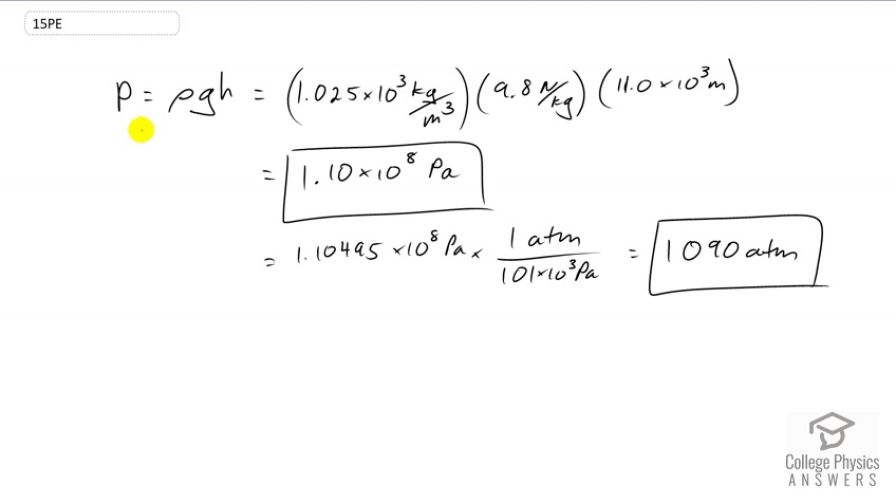 15PE
P = ρgh = (1.025×10³ kg/m³)(9.8 N/kg)(11.0×10³ m)
= 1.10×10⁸ Pa
= 1.10495×10⁸ Pa × 1 atm/101×10³ Pa = 1090 atm
College Physics
ANSWERS